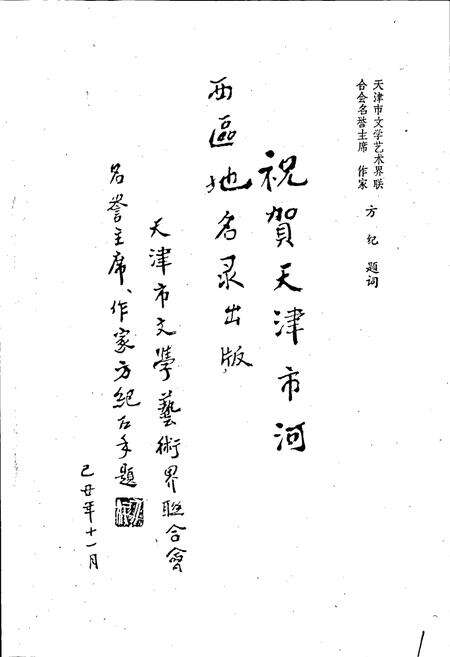 天津市文学艺术界联
合会名誉主席 作家 方纪 题词
祝賀天津市河
西區地名录出版
天津市文學藝術界聯合會
名誉主席、作家方紀左手题
己丑年十一月